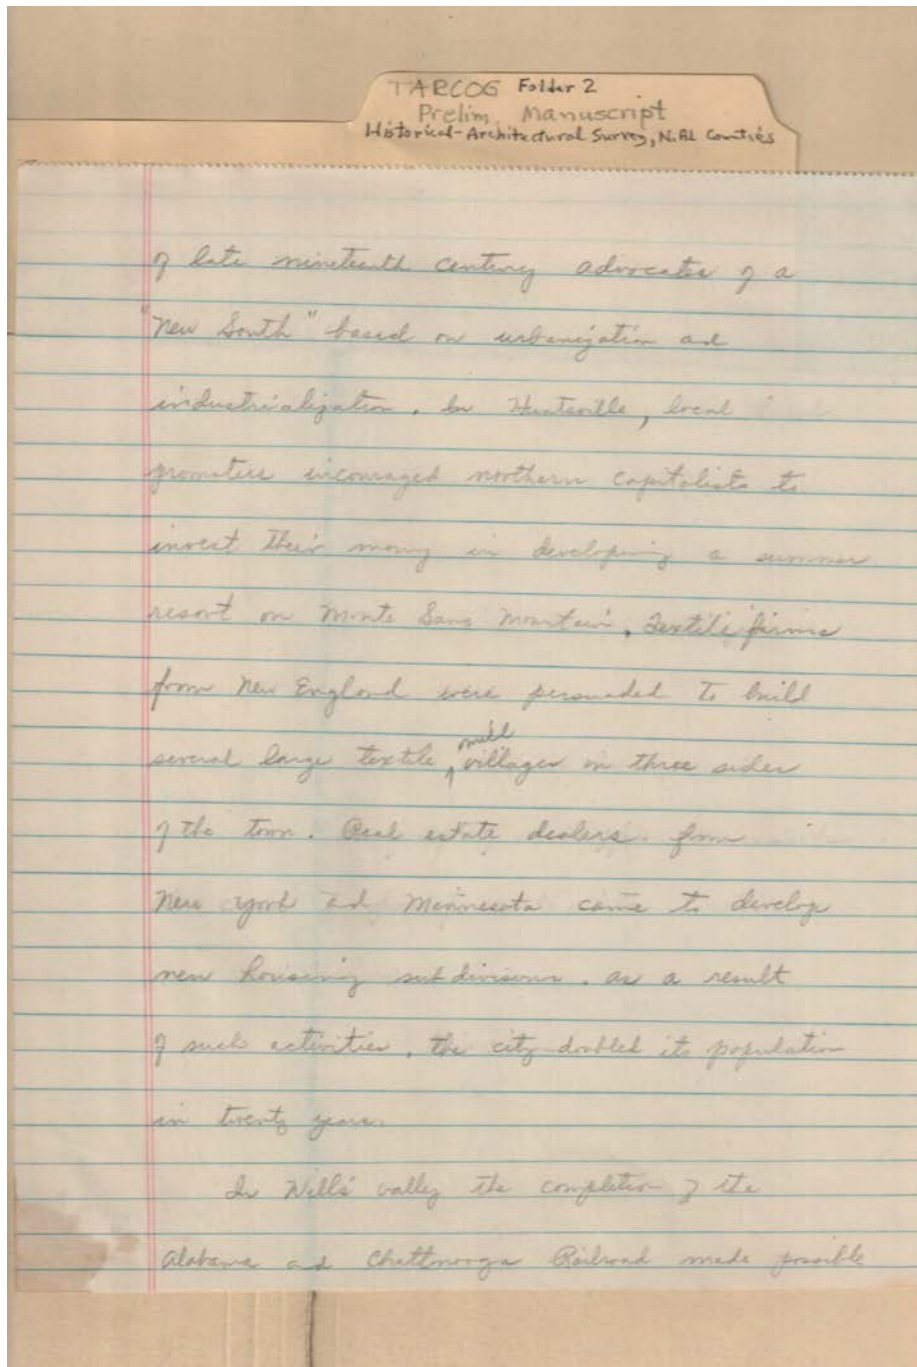 TARCOG Folder 2
Prelim. Manuscript
Historical-Architectural Survey, N.AL Counties
of late nineteenth century advocates of a
"New South" based on urbanization and
industrialization. In Huntsville, local
promoters incouraged northern capitalists to
invest their money in developing a summer
resort on Monte Sano Mountain. Textile firms
from New England were persuaded to build
several large textile mill villages on three sides
of the town. Real estate dealers from
New York and Minnesota came to develop
new housing subdivisions. As a result
of such activities, the city doubled its population
in twenty years.
In Wills' valley the completion of the
Alabama and Chattanooga Railroad made possible